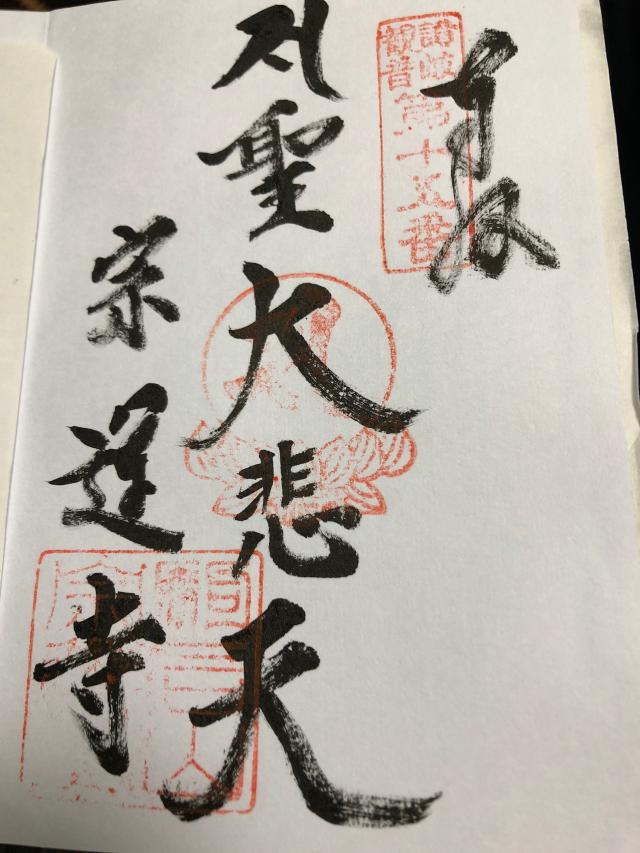 奉拝
讃岐
観音
第十五番
聖大悲
宗運寺